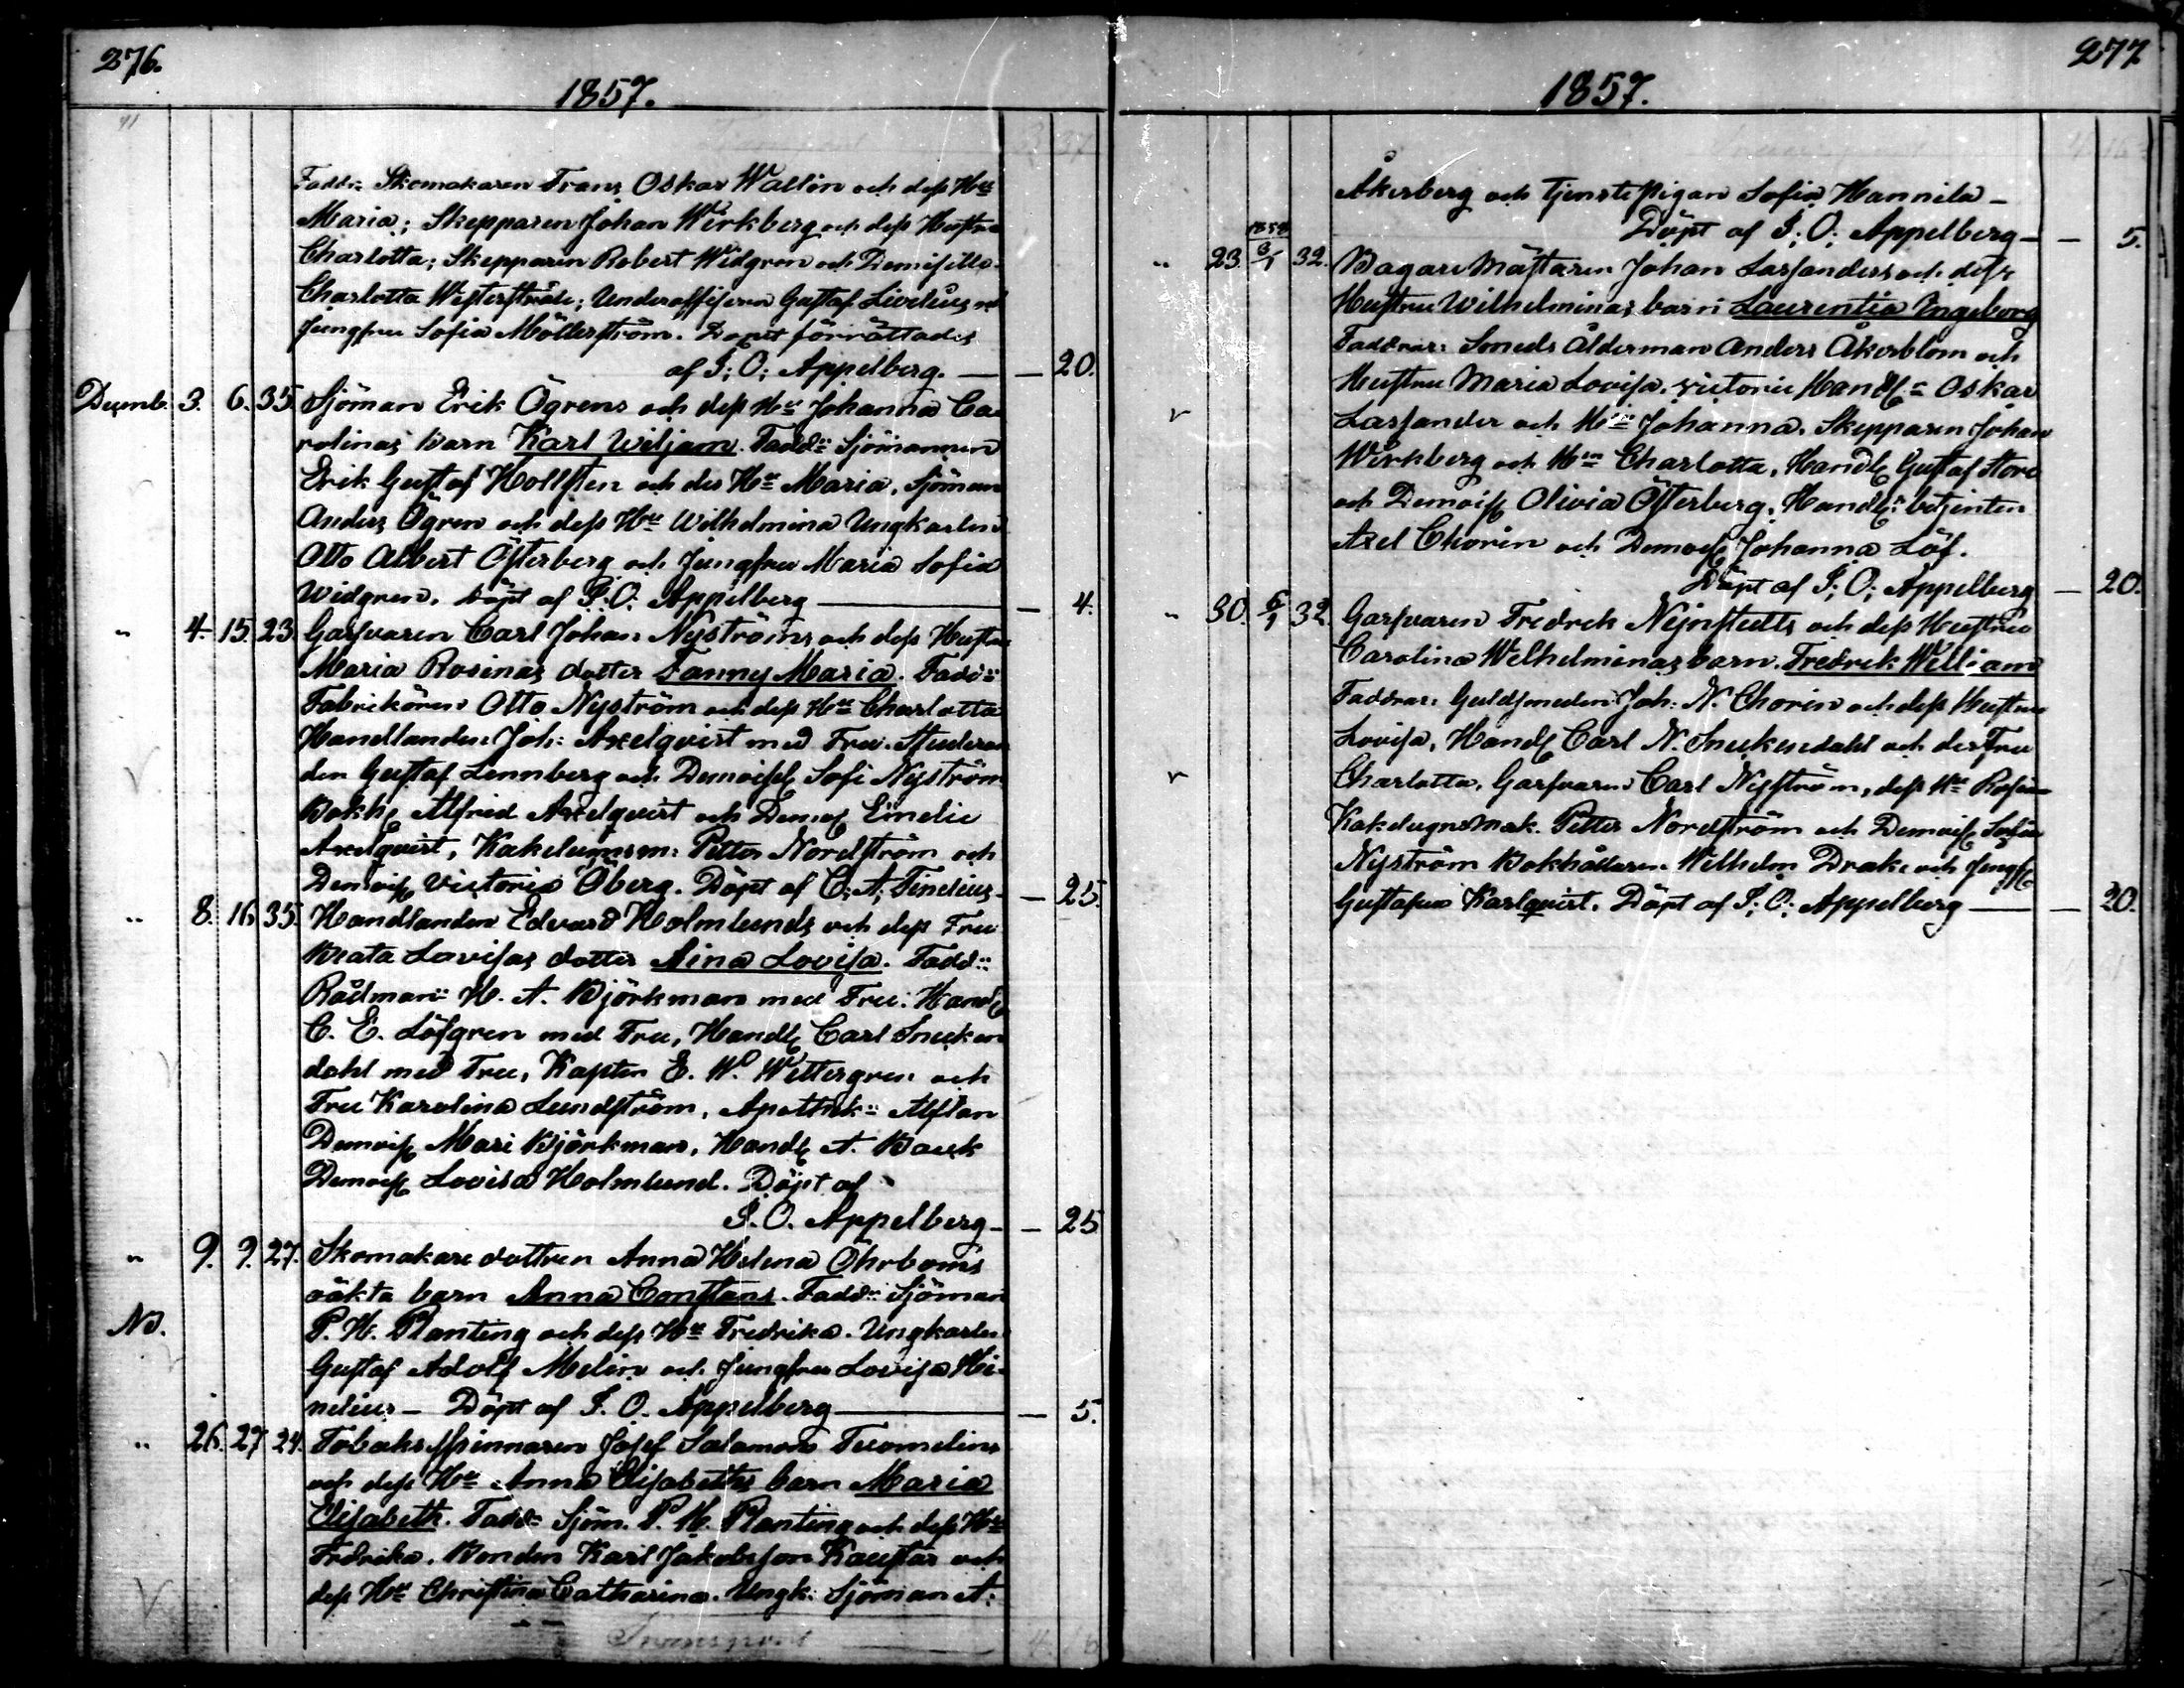 276.
1857.
Fadd: Skomakaren Frans Oskar Wallin och dess Hu
Maria; Skepparen Johan Wirkberg och dess Hustru
Charlotta; Skepparen Robert Widgren och Demiselle
Charlotta Westerstråle; Underofficern Gustaf Livelius och
Jungfru Sofia Möllerström. Dopet förrättades
af I; O; Appelberg. — — 20.
Decemb. 3. 6. 35. Sjöman Erik Ögrens och dess Hu Johanna Ca
rolinas barn Karl Wiljam. Fadd: Sjömannen
Erik Gustaf Hollsten och des Hu Maria, Sjöman
Anders Ögren och dess Hu Wilhelmina Ungkarlen
Otto Albert Österberg och Jungfru Maria Sofia
Widgren. Döpt af I. O. Appelberg — — 4.
" 4. 15. 23. Garfvaren Carl Johan Nyströms och dess Hustru
Maria Rosinas dotter Fanny Maria. Fadd:
Fabrikören Otto Nyström och dess Hu Charlotta
Handlanden Joh: Axelqvist med Fru. Studeran
den Gustaf Lennberg och Demoisel Sofi Nyström
Bokh Alfred Axelqvist och Demos Emelie
Axelqvist, Kakelugnsm: Petter Nordström och
Demois Victoria Öberg. Döpt af C; A; Tindelius — 25.
" 8. 16. 35. Handlanden Edvard Holmlunds och dess Fru
Beata Lovisas dotter Aina Lovisa. Fadd:
Rådman H. A. Björkman med Fru: Handl
C. E. Löfgren med Fru, Handl Carl Snecken
dahl med Fru, Kapten E. W. Wettergren och
Fru Karolina Lundström, Apothek:
Demois Mari Björkman, Handl A. Back
Demois Lovisa Holmlund. Döpt af
I. O. Appelberg — — 25
" 9. 9. 27. Skomakare dottren Anna Helena Öhrboms
oäkta barn Anna Constans. Fadd: Sjöman
No. P. H. Planting och dess Hu Fredrika. Ungkarlen
Gustaf Adolf Melin och Jungfru Lovisa He-
nelius — Döpt af I. O. Appelberg — — 5.
" 26. 27. 24. Tobaksspinnaren Josef Salamon Tuomelins
och dess Hu Anna Elisabeths barn Maria
Elisabeth. Fadd: Sjöm. P. H. Planting och dess Hu
Fredrika. Bonden Karl Jakobsson Kaustar och
dess Hu Christina Catharina. Ungk: Sjöman A:
Transport
277
1857.
Åkerberg och Tjenstepigan Sofia Hannila —
Döpt af I; O; Appelberg — — 5.
" 23. 1858 3/1 32. Bagare Mästaren Johan Lassanders och dess
Hustru Wilhelminas barn Laurentia Ingeborg
Faddrar: Smeds Ålderman Anders Åkerblom och
Hustru Maria Lovisa, Victorie Handl: Oskar
Lassander och Hu Johanna. Skepparen Johan
Wirkberg och Hu Charlotta, Handl Gustaf Store
och Demois Olivia Österberg, Handl: betjenten
Axel Chorin och Demois Johanna Löf.
Döpt af I; O; Appelberg — 20.
" 30. 6/1 32 Garfvaren Fredrek Nynstedts och dess Hustru
Carolina Welhelminas barn. Fredrek William
Faddrar: Guldsmeden Joh: N. Chorin och dess Hustru
Lovisa, Handl Carl N. Sneckendahl och dess Fru
Charlotta, Garfvaren Carl Nyström, dess Hu Rosina
Kakelugnsmak. Petter Nordström och Demois Sofia
Nyström Bokhållaren Wilhelm Drake och Jungf
Gustafva Karlqvist. Döpt af I; O; Appelberg — — 20.